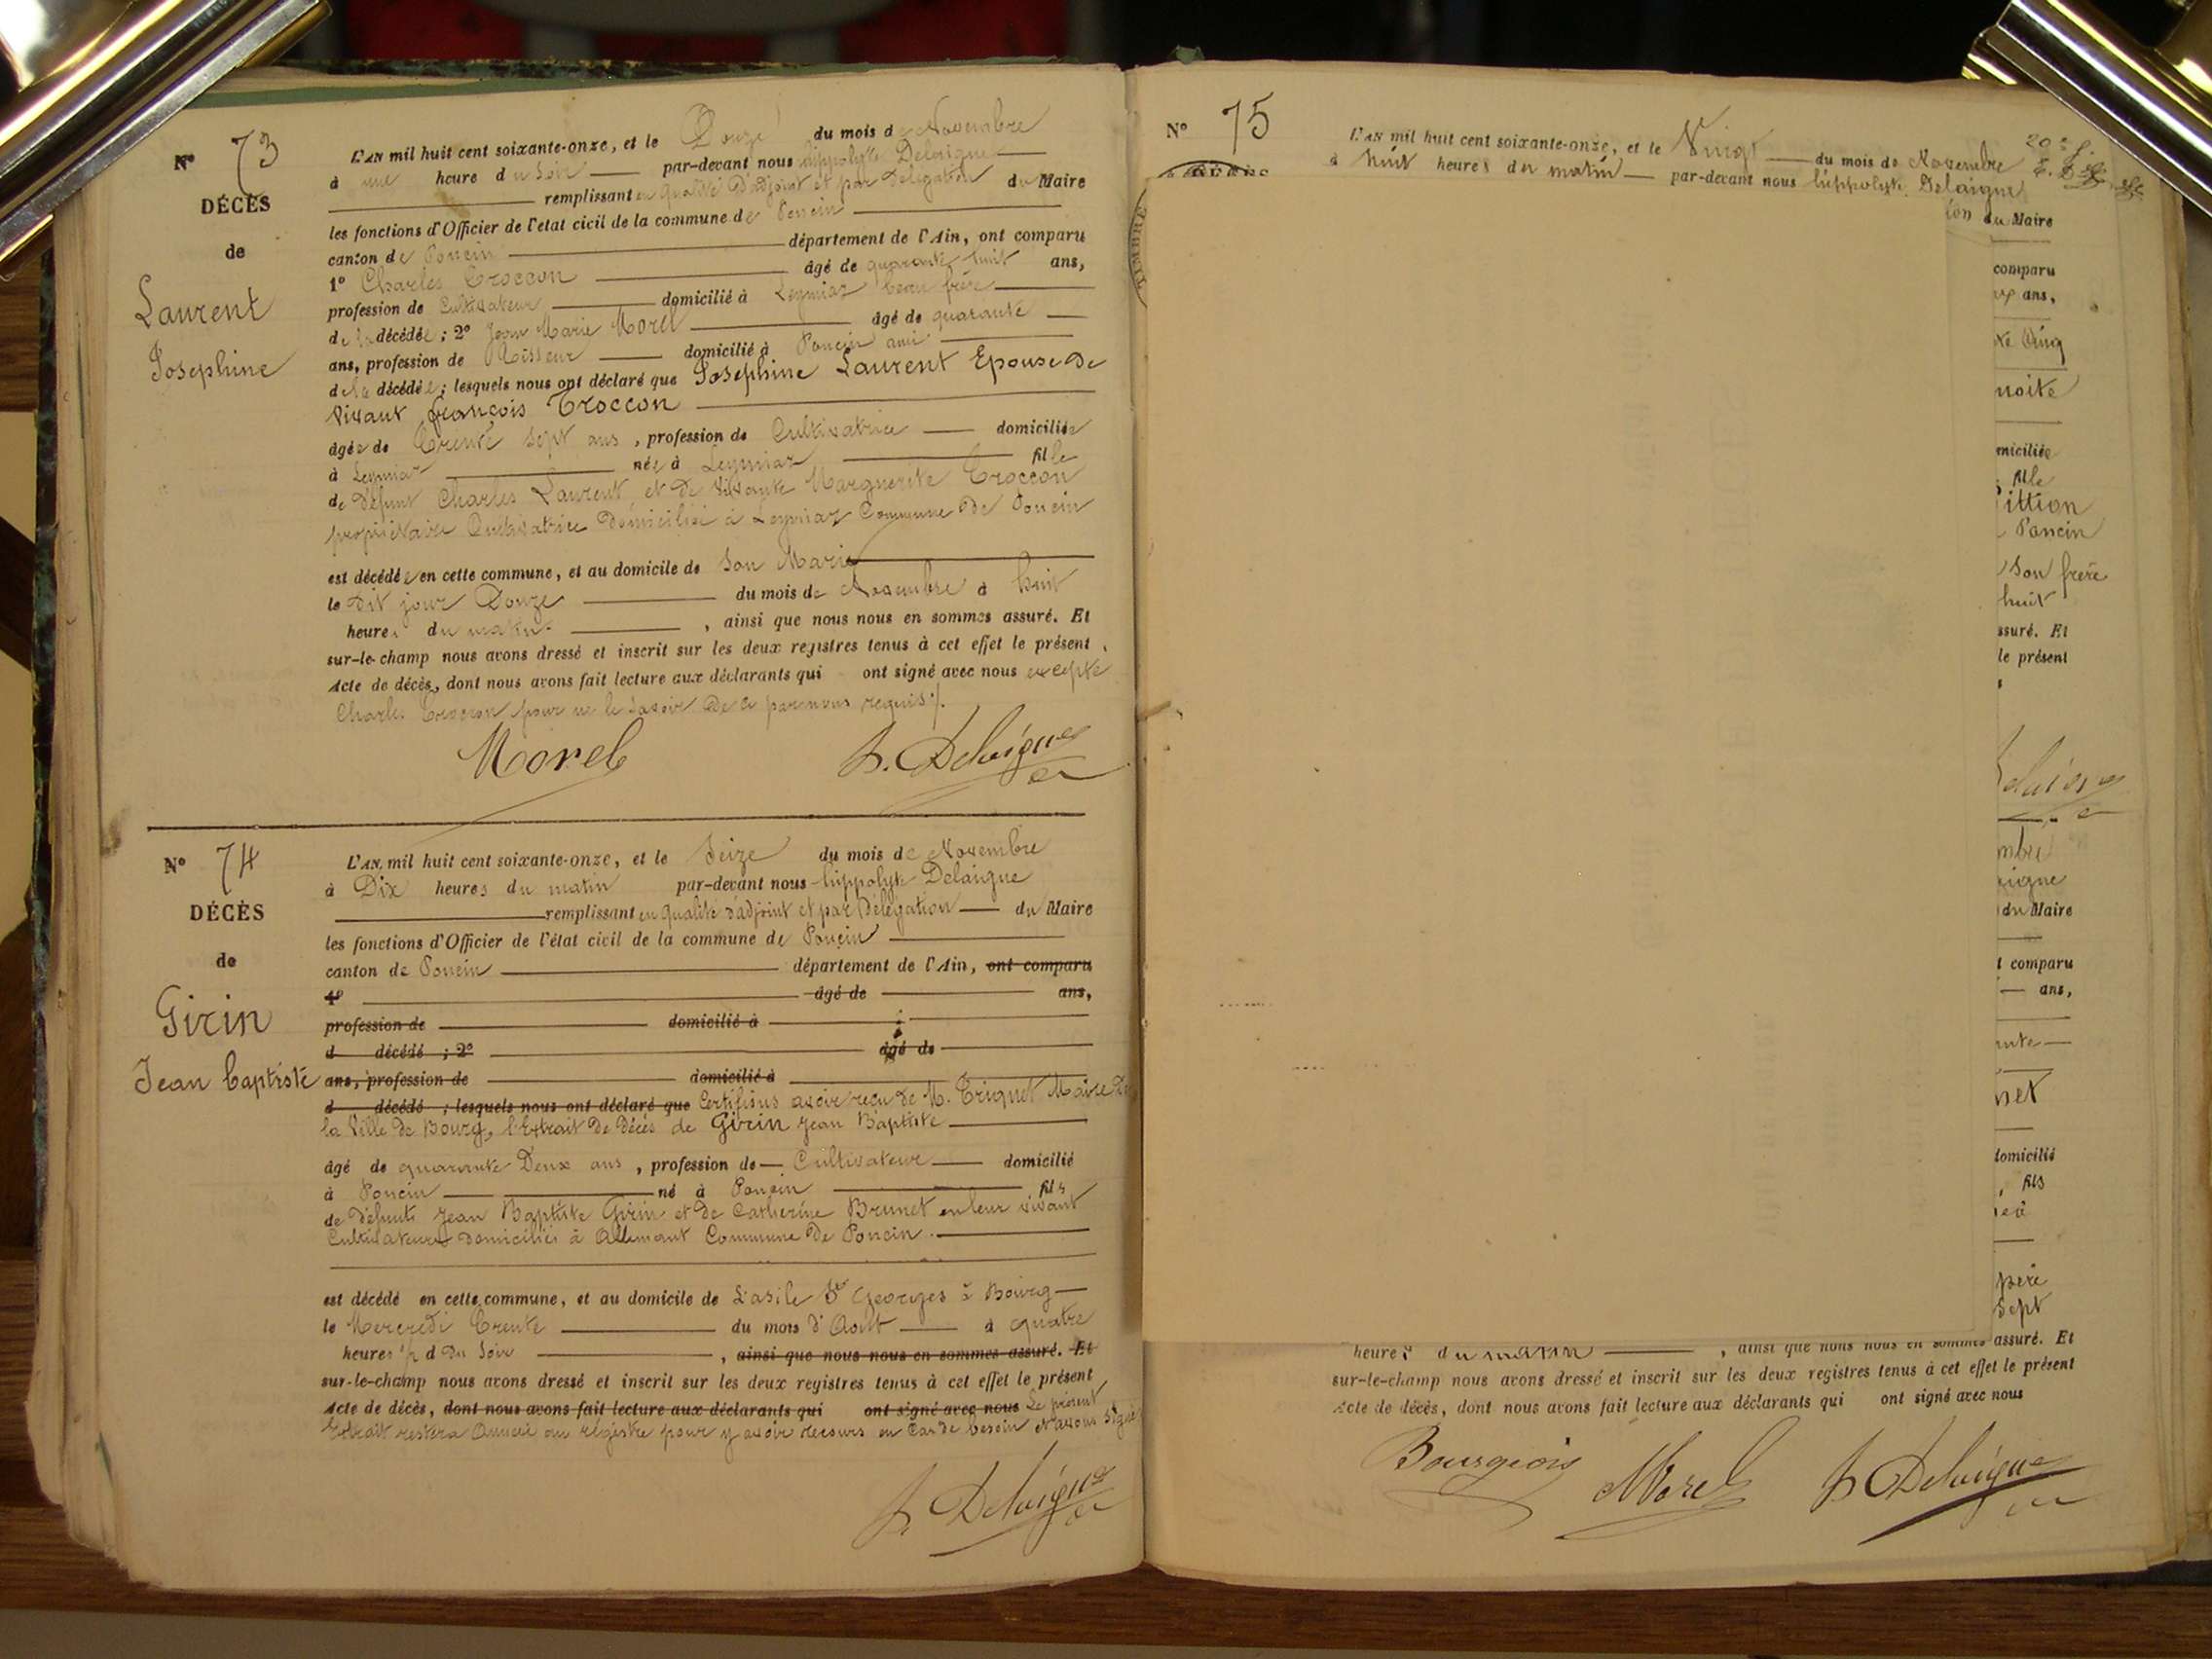 N° 73
DÉCÈS
de
Laurent
Josephine
L'AN mil huit cent soixante-onze, et le Douze du mois de Novembre
à une heure du Soir par-devant nous hippolyte Delaigue
remplissant en qualité d'adjoint et par délégation du Maire
les fonctions d'Officier de l'état civil de la commune de Poncin
canton de Poncin département de l'Ain, ont comparu
1° Charles Croccon âgé de quarante huit ans,
profession de Cultivateur domicilié à Leymiaz beau frère
de la décédée ; 2° Jean Marie Morel âgé de quarante
ans, profession de domicilié à Poncin ami
de la décédée ; lesquels nous ont déclaré que Josephine Laurent Epouse de
vivant françois Croccon
âgée de Trente Sept ans , profession de Cultivatrice domiciliée
à Leymiaz née à Leymiaz fille
de défunt Charles Laurent et de vivante Marguerite Croccon
propriétaire Cultivatrice domicilié à Leymiaz Commune de Poncin
est décédée en cette commune, et au domicile de Son Marie
le dit jour Douze du mois de Novembre à huit
heures du matin , ainsi que nous nous en sommes assuré. Et
sur-le-champ nous avons dressé et inscrit sur les deux registres tenus à cet effet le présent
Acte de décès, dont nous avons fait lecture aux déclarants qui ont signé avec nous excepté
Charles Croccon pour ne le Savoir de ce par nous requis ./.
Morel H. Delaigue
N° 74
DÉCÈS
de
Girin
Jean baptiste
L'AN mil huit cent soixante-onze, et le Seize du mois de Novembre
à Dix heures du matin par-devant nous hippolyte Delaigue
remplissant en qualité d'adjoint et par délégation du Maire
les fonctions d'Officier de l'état civil de la commune de Poncin
canton de Poncin département de l'Ain, ont comparu
1° âgé de ans,
profession de domicilié à
d décédé ; 2° âgé de
ans, profession de domicilié à
d décédé ; lesquels nous ont déclaré que Certifions avoir reçu de M. Triquet Maire De
la Ville de Bourg, l'Extrait de Décès de Girin Jean Baptiste
âgé de quarante Deux ans , profession de Cultivateur domicilié
à Poncin né à Poncin fils
de défunts Jean Baptiste Girin et de Catherine Brunet en leur vivant
Cultivateurs domiciliés à Allemant Commune de Poncin.
est décédé en cette commune, et au domicile de L'asile St Georges à Bourg
le Mercredi Trente du mois d'Août à quatre
heures 1/2 d Du Soir , ainsi que nous nous en sommes assuré. Et
sur-le-champ nous avons dressé et inscrit sur les deux registres tenus à cet effet le présent
Acte de décès, dont nous avons fait lecture aux déclarants qui ont signé avec nous Le présent
Extrait restera Annexé au régistre pour y avoir recours en Cas de besoin et avons signé
H. Delaigue
N° 75
DÉCÈS
TIMBRE
L'AN mil huit cent soixante-onze, et le Vingt du mois de Novembre
à huit heures du matin par-devant nous hippolyte Delaigue
du Maire
comparu
ans,
noite
miciliée
fille
ittion
Poncin
son frère
huit
ssuré. Et
le présent
elaigue
mbre
aigue
du Maire
t comparu
ans,
nte
net
domicilié
, fils
père
Sept
heures du matin , ainsi que nous nous en sommes assuré. Et
sur-le-champ nous avons dressé et inscrit sur les deux registres tenus à cet effet le présent
Acte de décès, dont nous avons fait lecture aux déclarants qui ont signé avec nous
Bourgeois Morel H. Delaigue